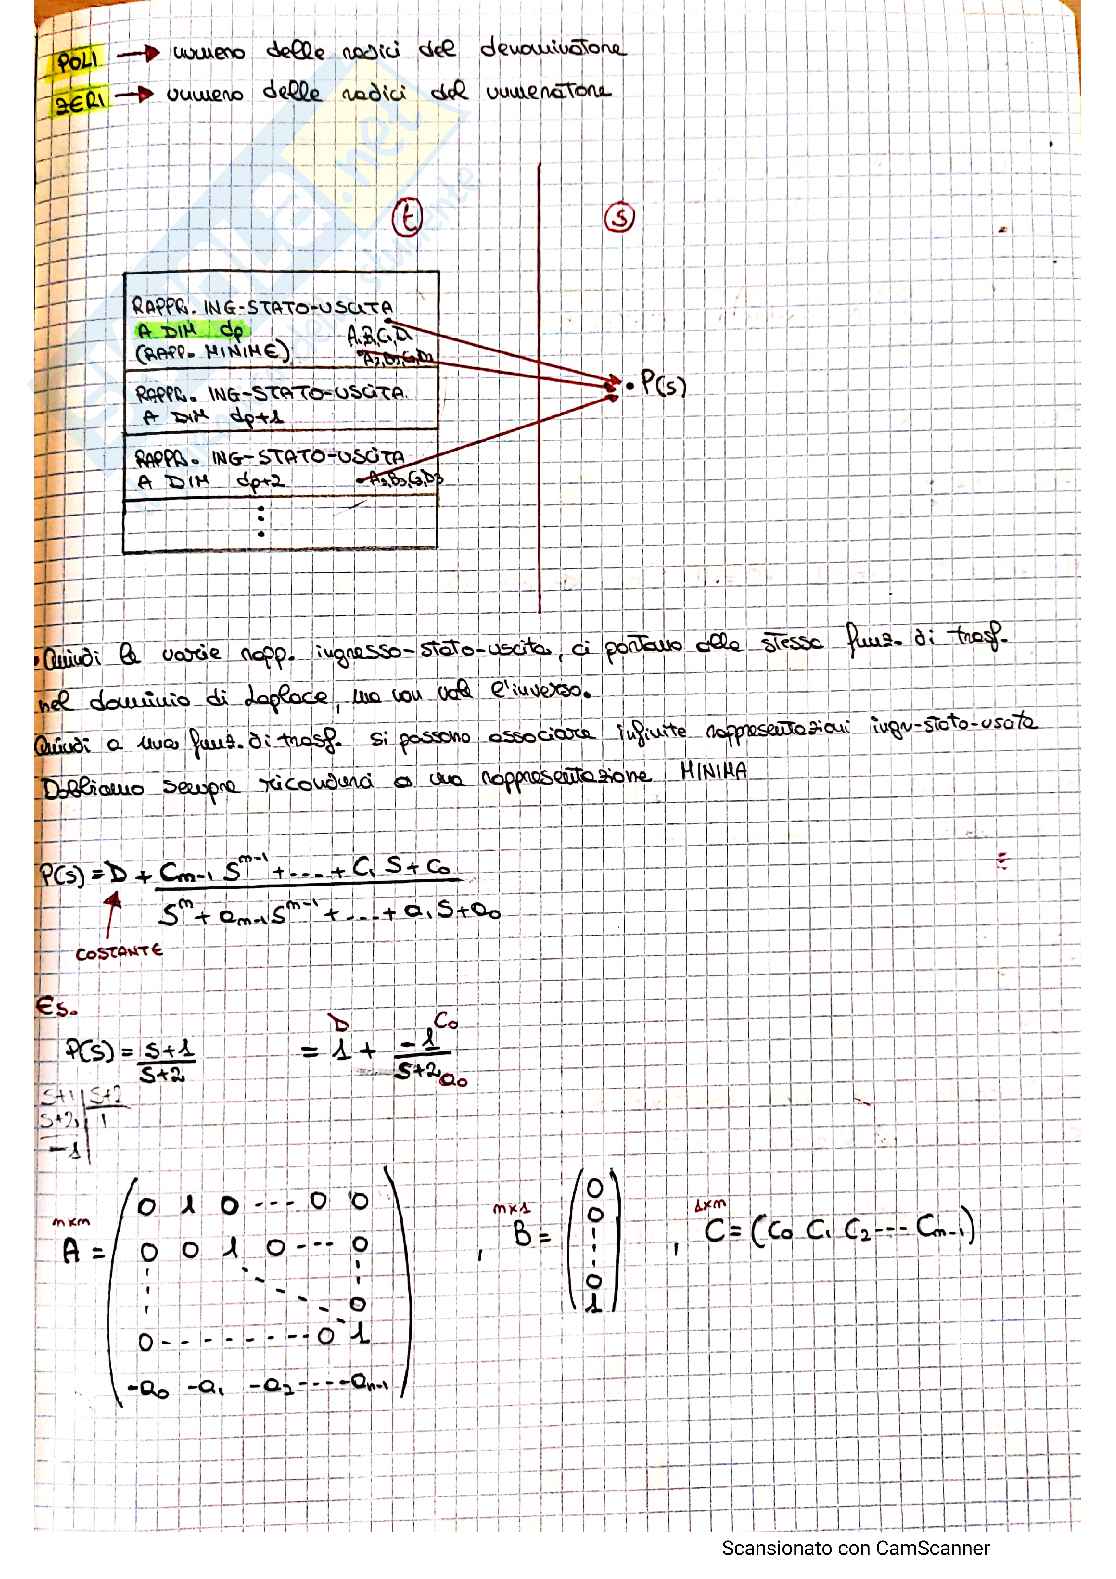 POLI → numero delle radici del denominatore
ZERI → numero delle radici del numeratore
t s
RAPPR. ING-STATO-USCITA
A DIM dp A,B,C,D
(RAPP. MINIME) A2,B2,C2,D2
RAPPR. ING-STATO-USCITA
A DIM dp+1
RAPPR. ING-STATO-USCITA
A DIM dp+2 A3,B3,C3,D3
⋮
• P(s)
• Quindi le varie rapp. ingresso-stato-uscita, ci portano alla stessa funz. di trasf.
nel dominio di Laplace, ma non vale l'inverso.
Quindi a una funz. di trasf. si possono associare infinite rappresentazioni ingr-stato-uscita
Dobbiamo sempre ricondurci a una rappresentazione MINIMA
P(s) = D + (Cm-1 S^m-1 + .... + C1 S + C0) / (S^m + am-1 S^m-1 + .... + a1 S + a0)
COSTANTE
Es.
D C0
P(s) = (s+1)/(s+2) = 1 + (-1)/(s+2) a0
s+1 | s+2
s+2 | 1
-1
mxm mx1 1xm
A = ( 0 1 0 --- 0 0
0 0 1 0 --- 0
0
0 - - - - - - - 0 1
-a0 -a1 -a2 ---- -an-1 )
, B = ( 0 0 0 1 )
, C = (C0 C1 C2 --- Cm-1)
Scansionato con CamScanner